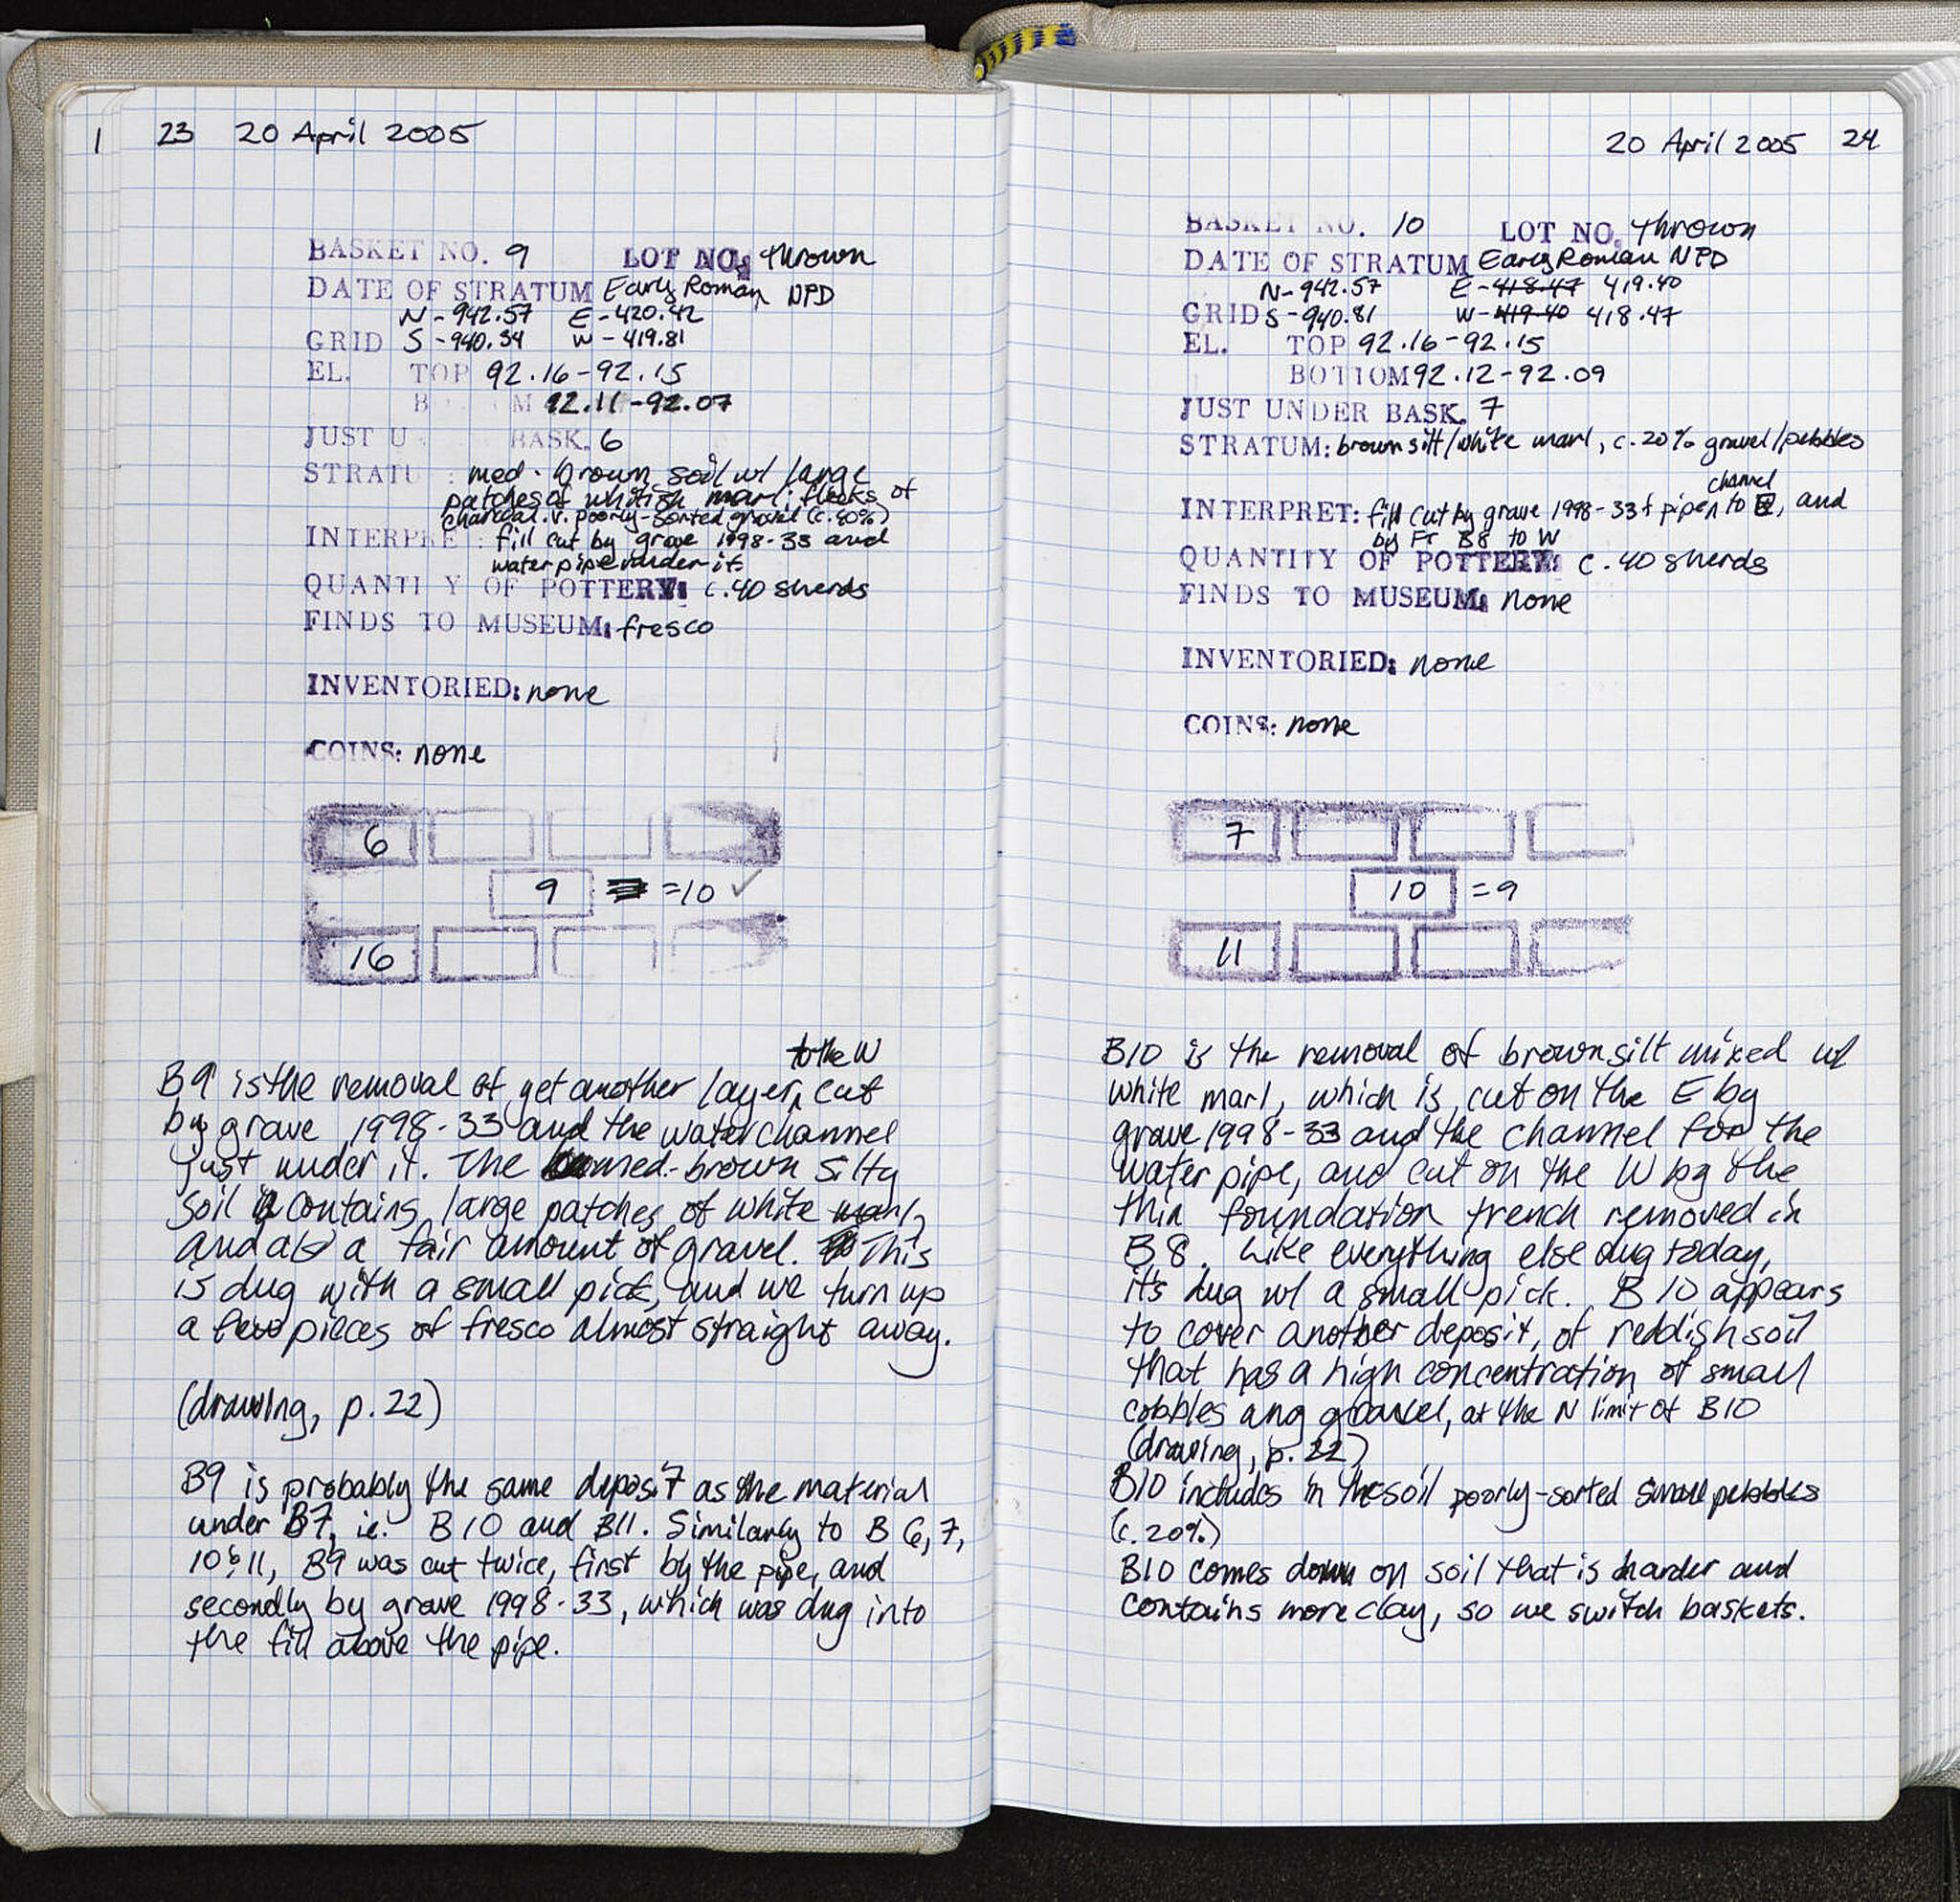 1 23 20 April 2005
BASKET NO. 9 LOT NO: thrown
DATE OF STRATUM Early Roman NPD
N - 942.57 E - 420.42
GRID S - 940.34 W - 419.81
EL. TOP 92.16-92.15
B M 92.11-92.07
JUST U BASK. 6
STRATU : med. brown soil w/ large
patches of whitish marl; flecks of
charcoal. v. poorly-sorted gravel (c.40%)
INTERPRE : fill cut by grave 1998-33 and
water pipe under it
QUANTI Y OF POTTERY: c.40 sherds
FINDS TO MUSEUM: fresco
INVENTORIED: none
COINS: none
6
9 =10 ✓
16
to the W
B9 is the removal of yet another layer, cut
by grave 1998-33 and the water channel
just under it. The med-brown silty
soil contains large patches of white marl,
and also a fair amount of gravel. This
is dug with a small pick, and we turn up
a few pieces of fresco almost straight away.
(drawing, p.22)
B9 is probably the same deposit as the material
under B7, ie. B10 and B11. Similarly to B 6, 7,
10 & 11, B9 was cut twice, first by the pipe, and
secondly by grave 1998-33, which was dug into
the fill above the pipe.
20 April 2005 24
BASKET NO. 10 LOT NO. thrown
DATE OF STRATUM Early Roman NPD
N- 942.57 E - 418.47 419.40
GRID S - 940.81 W - 419.40 418.47
EL. TOP 92.16-92.15
BOTTOM 92.12-92.09
JUST UNDER BASK. 7
STRATUM: brown silt/white marl, c.20% gravel/pebbles
channel
INTERPRET: fill cut by grave 1998-33 + pipe to E, and
by Fr B8 to W
QUANTITY OF POTTERY: c.40 sherds
FINDS TO MUSEUM: none
INVENTORIED: none
COINS: none
7
10 =9
11
B10 is the removal of brown silt mixed w/
white marl, which is cut on the E by
grave 1998-33 and the channel for the
water pipe, and cut on the W by the
thin foundation trench removed in
B8. Like everything else dug today,
it's dug w/ a small pick. B10 appears
to cover another deposit, of reddish soil
that has a high concentration of small
cobbles ang gravel, at the N limit of B10
(drawing, p.22)
B10 includes in the soil poorly-sorted small pebbles
(c.20%)
B10 comes down on soil that is harder and
contains more clay, so we switch baskets.